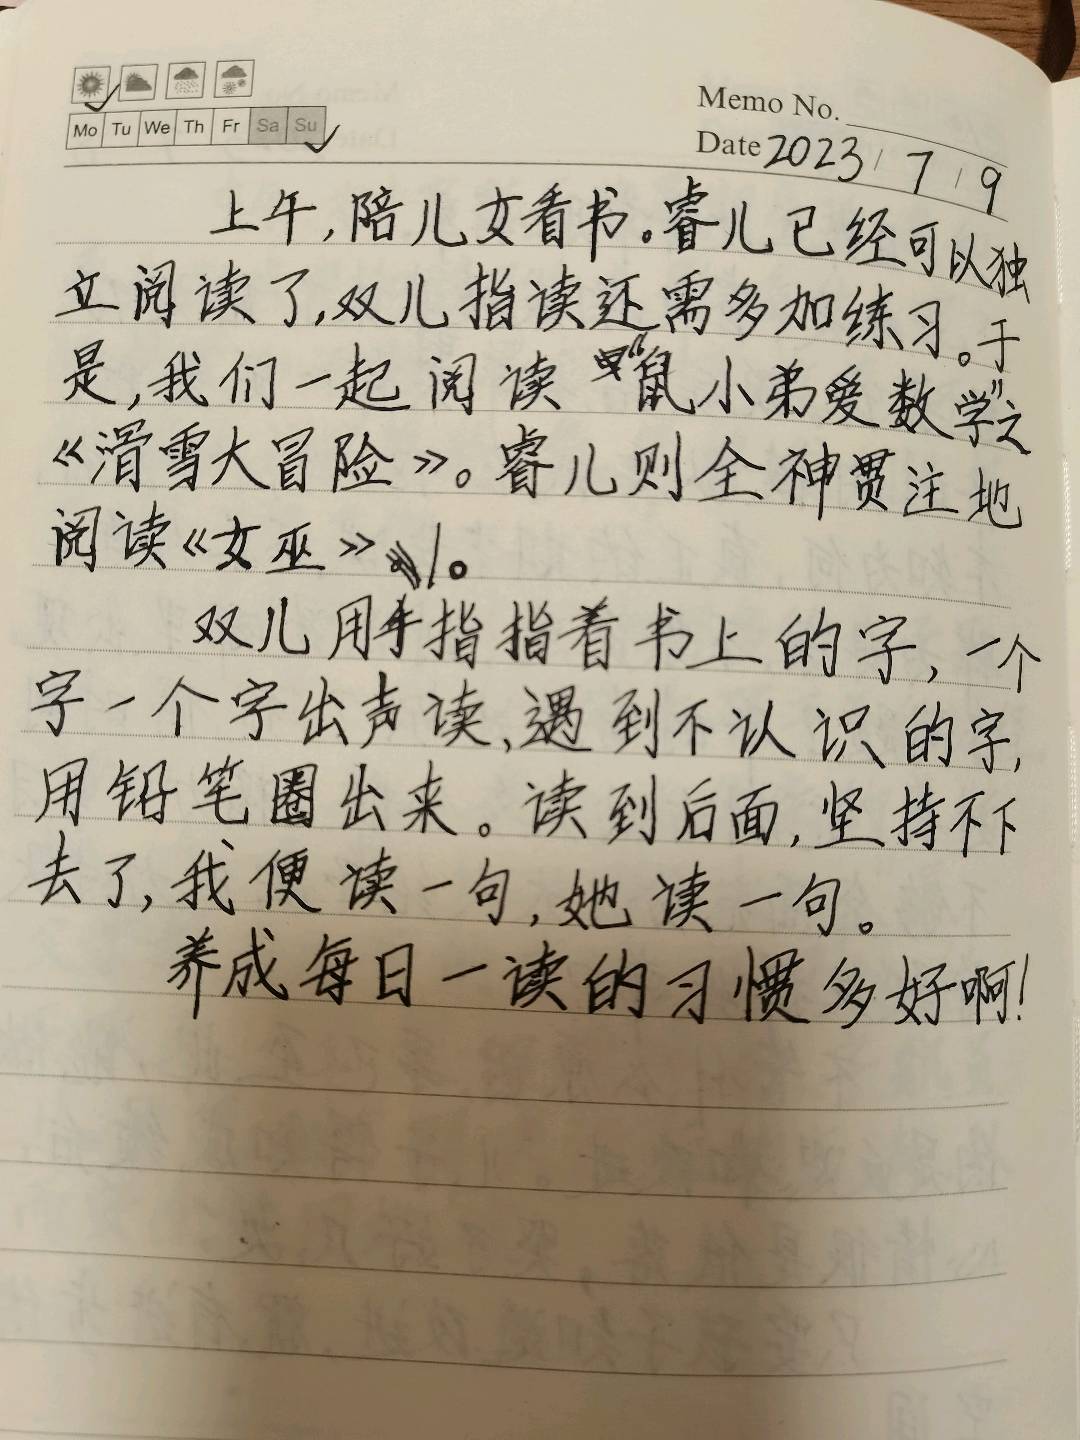 Memo No.
Mo Tu We Th Fr Sa Su
Date 2023 / 7 / 9
上午,陪儿女看书。睿儿已经可以独
立阅读了,双儿指读还需多加练习。于
是,我们一起阅读“鼠小弟爱数学”之
《滑雪大冒险》。睿儿则全神贯注地
阅读《女巫》。
双儿用手指指着书上的字,一个
字一个字出声读、遇到不认识的字,
用铅笔圈出来。读到后面,坚持不下
去了,我便读一句,她读一句。
养成每日一读的习惯多好啊!